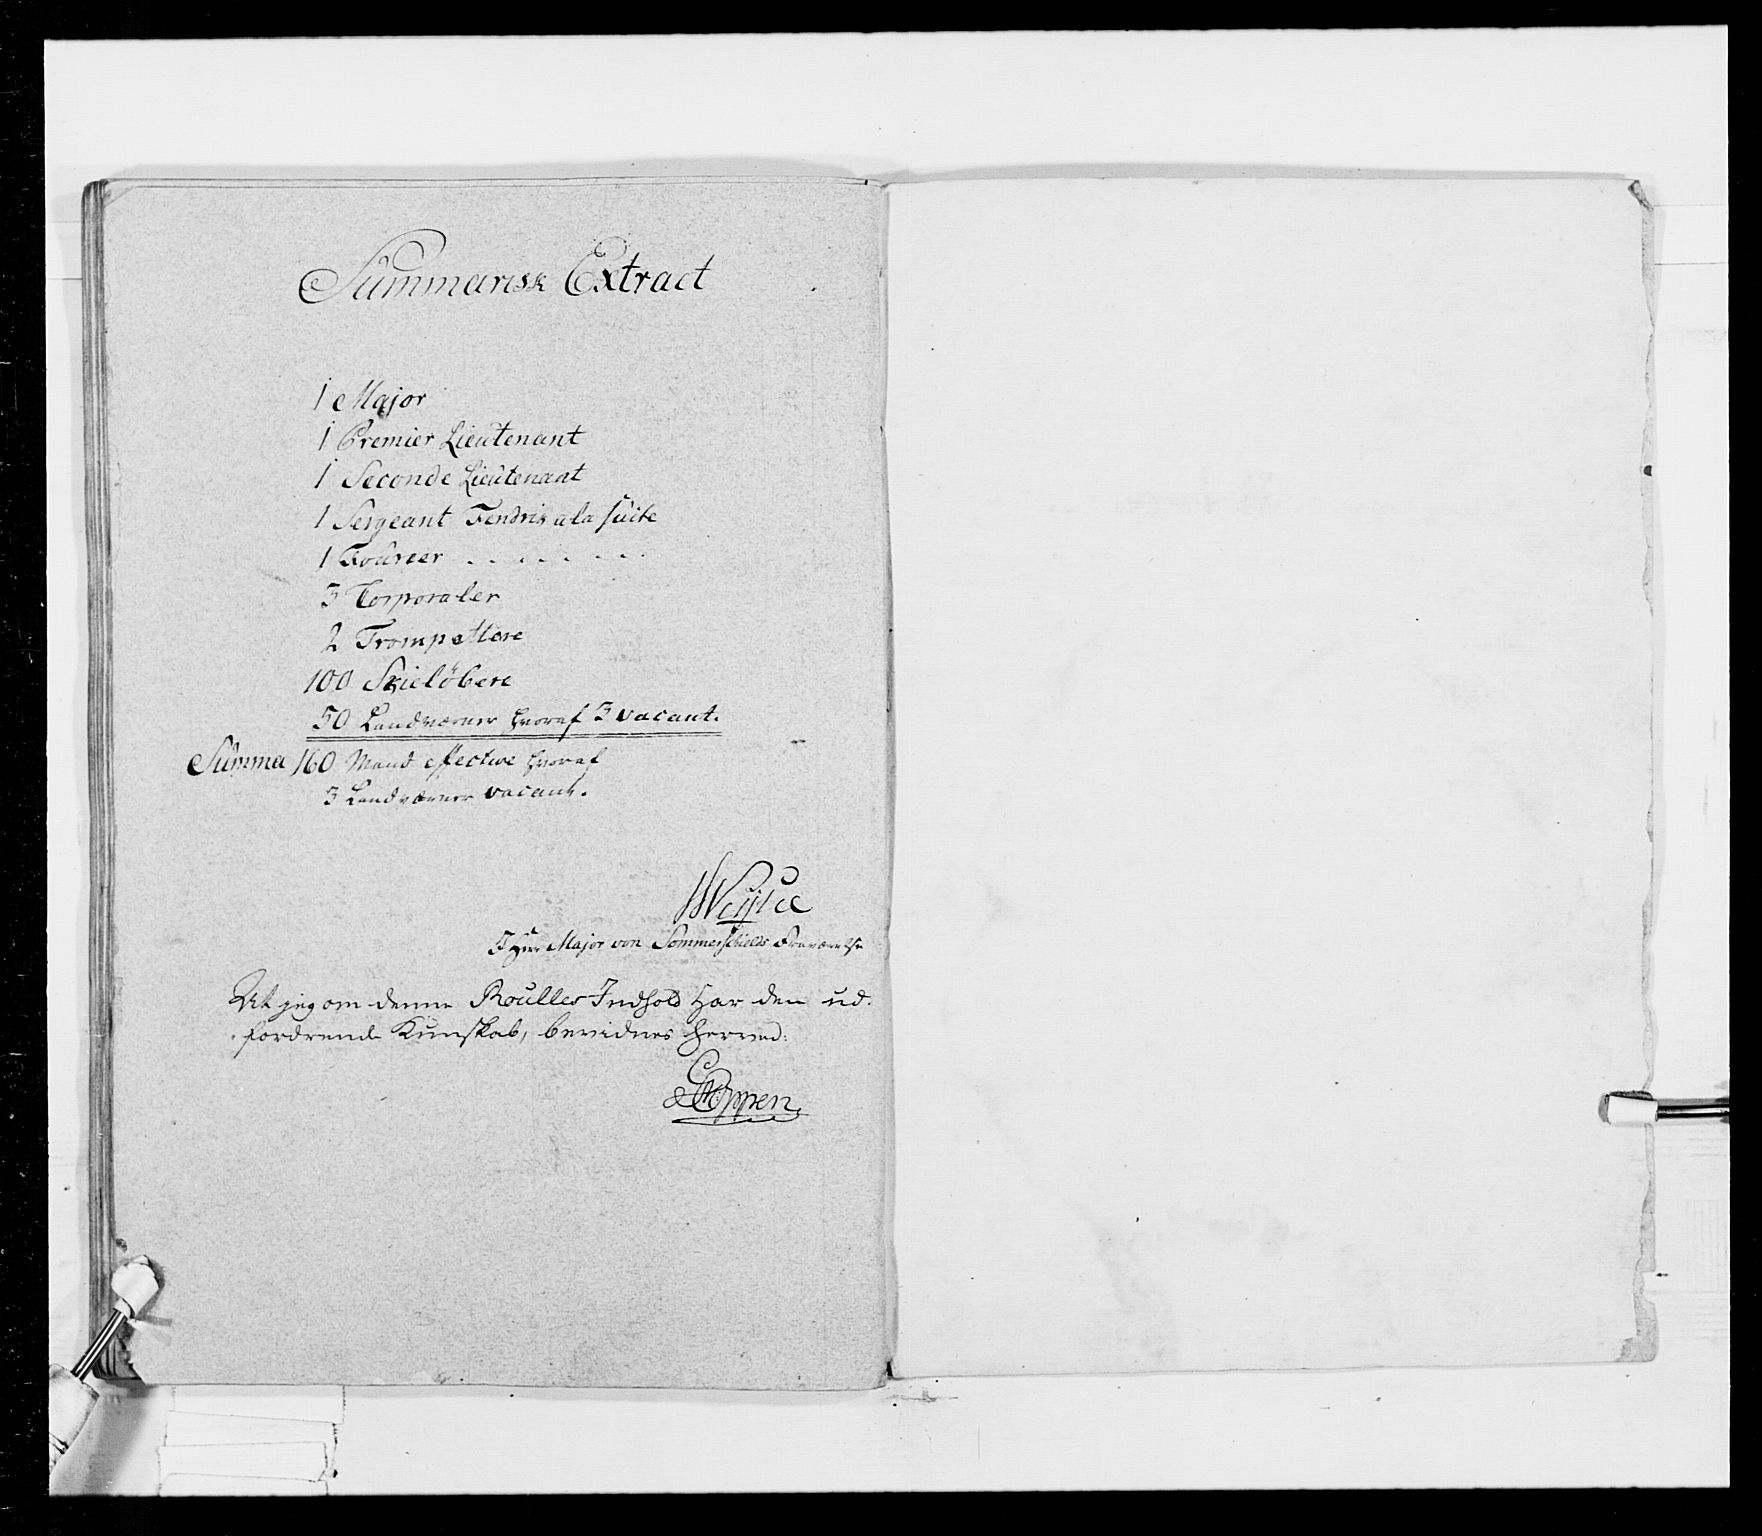 Summarisk Extract
1 Major
1 Premier Lieutenant
1 Seconde Lieutenant
1 Sergeant Fendrik a la suite
1 Foureer . . . . . . . .
3 Corporaler
2 Trompettere
100 Skielöbere
50 Landværner hvoraf 3 vacant.
Summa 160 Mand effective hvoraf
3 Landværner vacant.
I Hr Major von Sommerschields Fraværelse
At jeg om denne Roulles Indhold har den ud-
fordrende Kunskab, bevidnes herved: